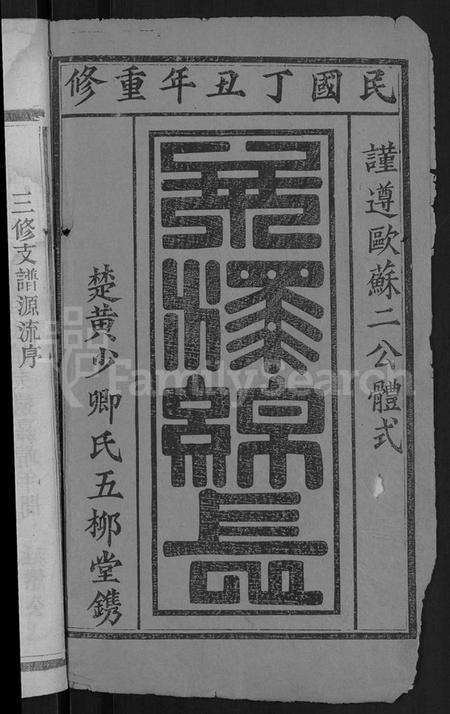 民國丁丑年重修
謹遵歐蘇二公體式
綿長
楚黃少卿氏五柳堂鐫
三修支譜源流序
FamilySearch